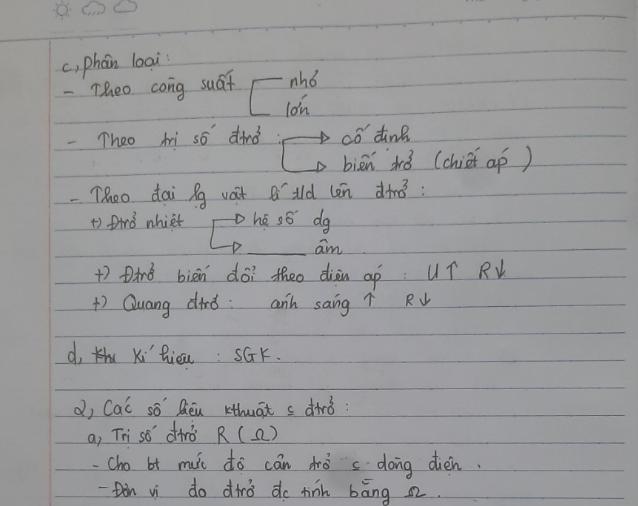 c, phân loại:
- Theo công suất nhỏ
lớn
- Theo trị số đtrở: cố định
biến trở (chiết áp)
- Theo đại lg vật lí t/d lên đtrở:
+) Đtrở nhiệt hệ số dg
______ âm
+) Đtrở biến đổi theo điện áp: U↑ R↓
+) Quang đtrở: ánh sáng ↑ R↓
d, Kí hiệu: SGK.
2, Các số liệu kthuật c đtrở:
a, Trị số đtrở R (Ω)
- Cho bt mức độ cản trở c dòng điện.
- Đơn vị đo đtrở đc tính bằng Ω.